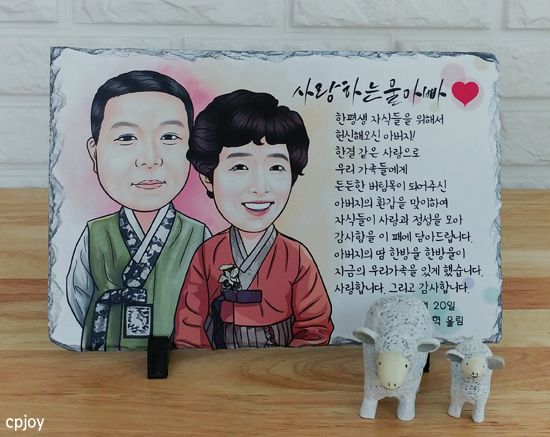 사랑하는 울아빠
한평생 자식들을 위해서
헌신해오신 아버지!
한결 같은 사랑으로
우리 가족들에게
든든한 버팀목이 되어주신
아버지의 환갑을 맞이하여
자식들이 사랑과 정성을 모아
감사함을 이 패에 담아드립니다.
아버지의 땀 한방울 한방울이
지금의 우리가족을 있게 했습니다.
사랑합니다. 그리고 감사합니다.
20일
혁 올림
cpjoy